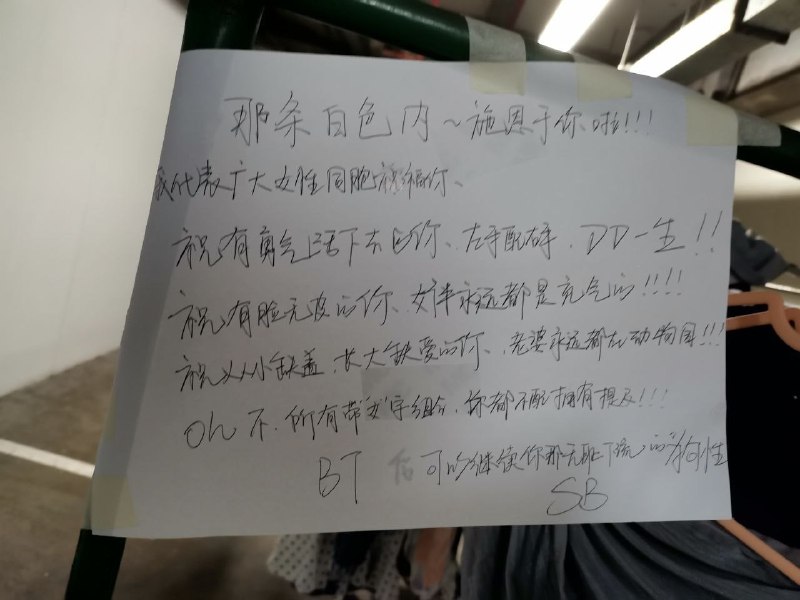 那条白色内~施恩于你啦!!!
我代表广大女性同胞祝福你、
祝有勇气活下去的你、左手配右手、DD一生!!
祝有脸无皮的你、女伴永远都是充气的!!!!
祝从小缺盖、长大缺爱的你、老婆永远都在动物园!!!
Oh 不、所有带"女"字组合、你都不配拥有提及!!!
BT 可以继续你那无耻下流的狗性
SB